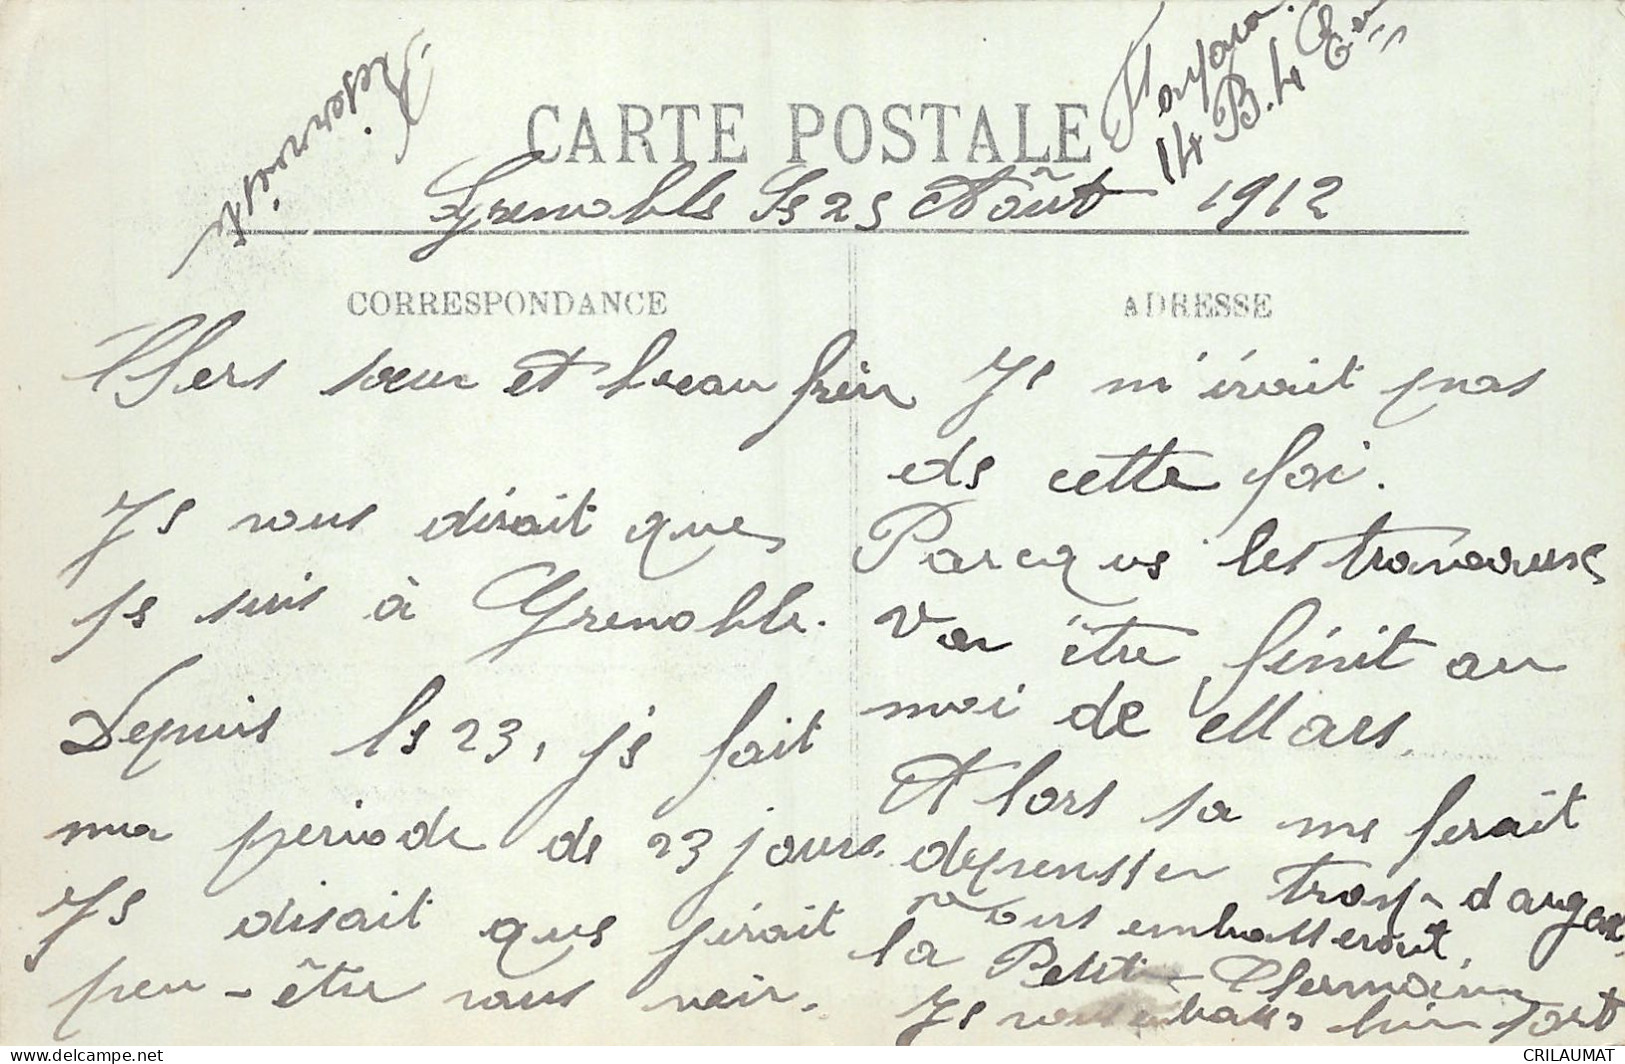 Réserviste
Fanfare.
14 B. 4 En
CARTE POSTALE
Grenoble le 25 Août 1912
CORRESPONDANCE
Chers sœur et beau frère
Je vous dirait que
je suis à Grenoble.
Depuis le 23, je fait
ma periode de 23 jours.
Je disait que j'irait
peu-être vous voir.
ADRESSE
Je m'irait pas
de cette foi.
Parcque les traveaux
Va être finit au
moi de Mars.
Alors sa me ferait
depensser trop d'argent
Vous embasserout
la Petit Germaine
Je vous embasse bien fort
CRILAUMAT